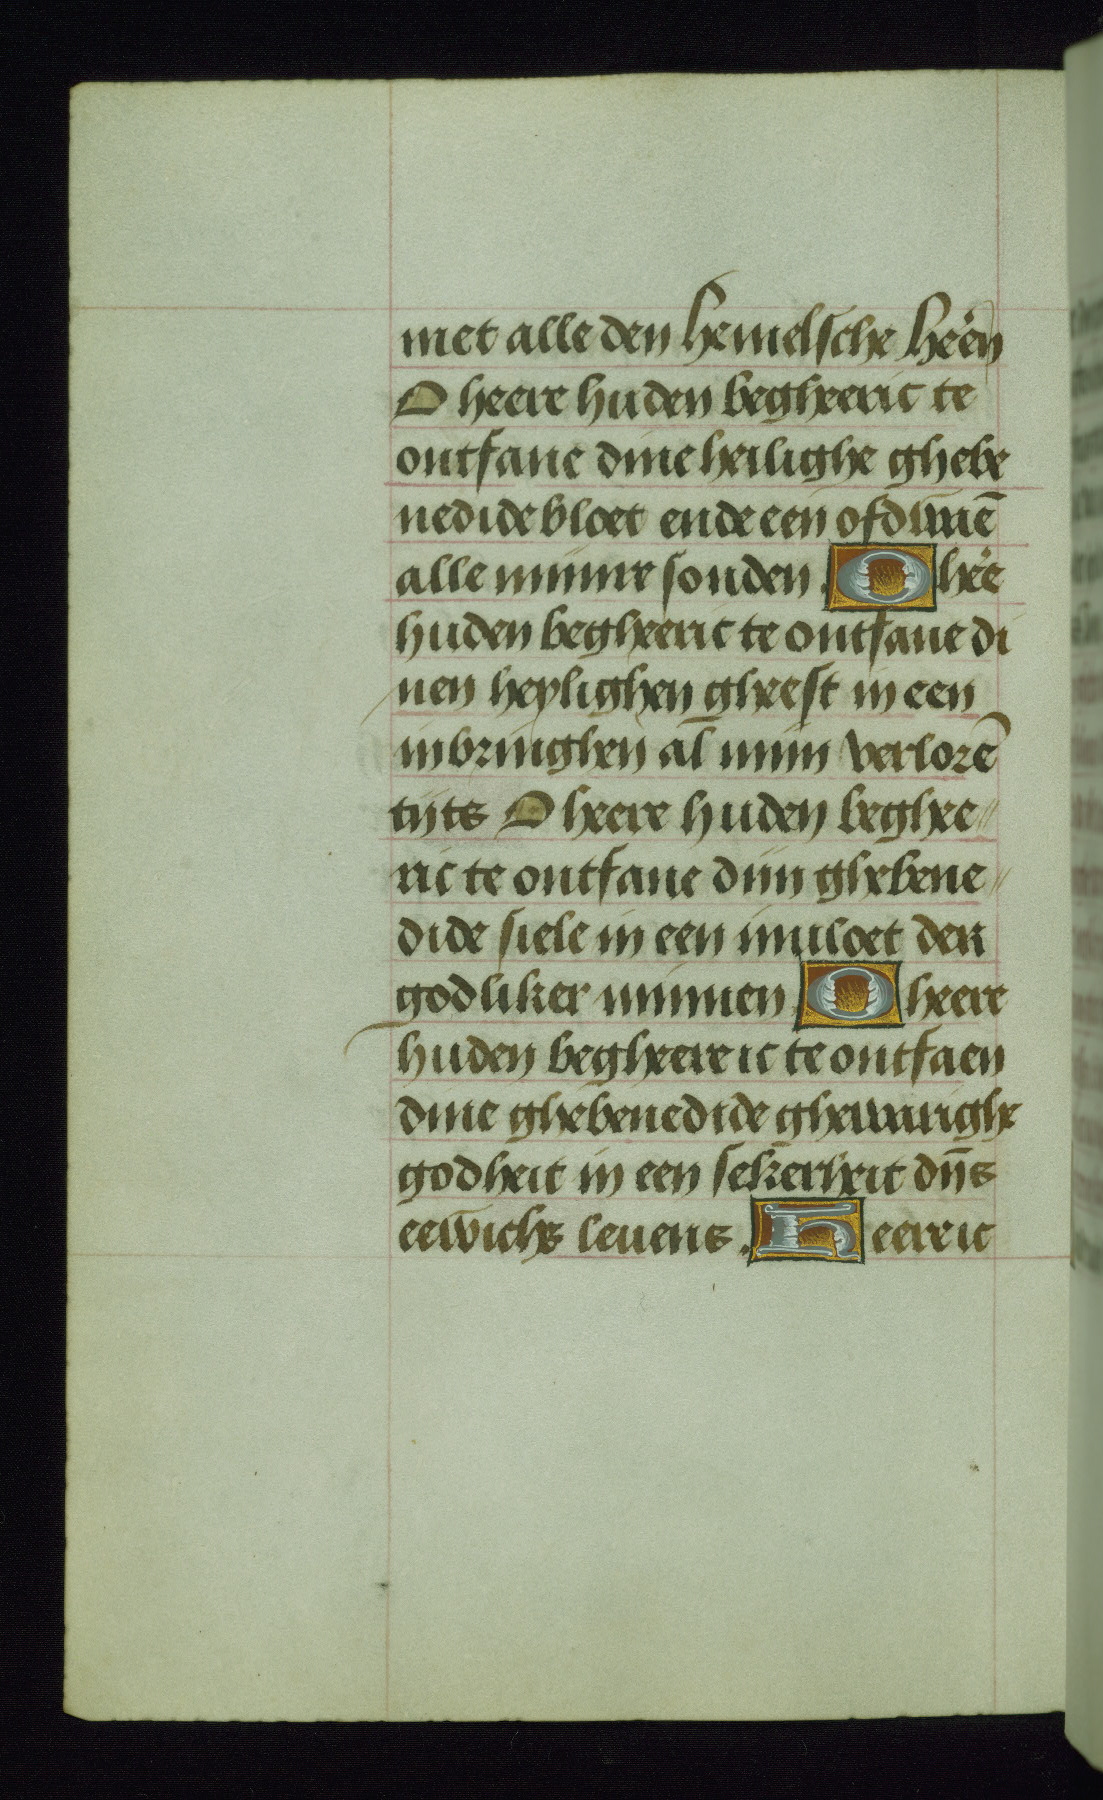 met alle den hemelsche heē̄n
O heere huden begheeric te
ontfane dine heilighe ghebe
nedide bloet ende een ofdwaē
alle miinre sonden . O heē
huden begheeric te ontfane di
nen heylighen gheest in een
inbringhen al miin verlorē
tijts O heere huden beghee//
ric te ontfane diin ghebene//
dide siele in een invloet der
godliker minnen . O heere
huden begheere ic te ontfaen
dine ghebenedide ghewarighe
godheit in een sekerheit dijns
eewichs levens . Heere ic